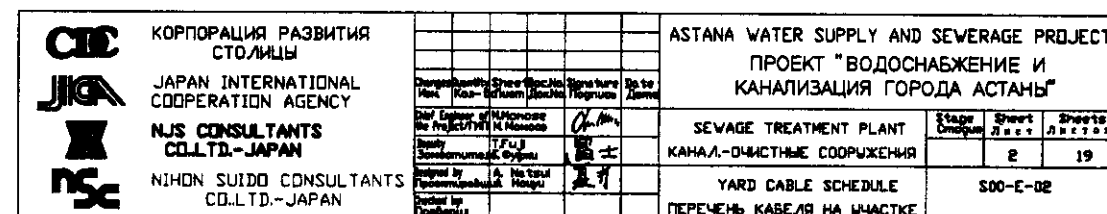 CDC
КОРПОРАЦИЯ РАЗВИТИЯ
СТОЛИЦЫ
JICA
JAPAN INTERNATIONAL
COOPERATION AGENCY
NJS CONSULTANTS
CO.,LTD.-JAPAN
nsc
NIHON SUIDO CONSULTANTS
CO.,LTD.-JAPAN
Changes Quantity Sheet Doc.No. Signature Date
Изм. Кол- Лист Док.No. Подпись Дата
Chief Engineer of N.Momose
the Project/ГИП Н. Момосе
Deputy T.Fuji
Заместитель Т. Фуджи
Designed by A. Natsui
Проектировал А. Нацуи
Checked by
Проверил
ASTANA WATER SUPPLY AND SEWERAGE PROJECT
ПРОЕКТ "ВОДОСНАБЖЕНИЕ И
КАНАЛИЗАЦИЯ ГОРОДА АСТАНЫ"
SEWAGE TREATMENT PLANT
КАНАЛ.-ОЧИСТНЫЕ СООРУЖЕНИЯ
Stage Sheet Sheets
Стадия Лист Листов
2 19
YARD CABLE SCHEDULE
ПЕРЕЧЕНЬ КАБЕЛЯ НА УЧАСТКЕ
S00-E-02